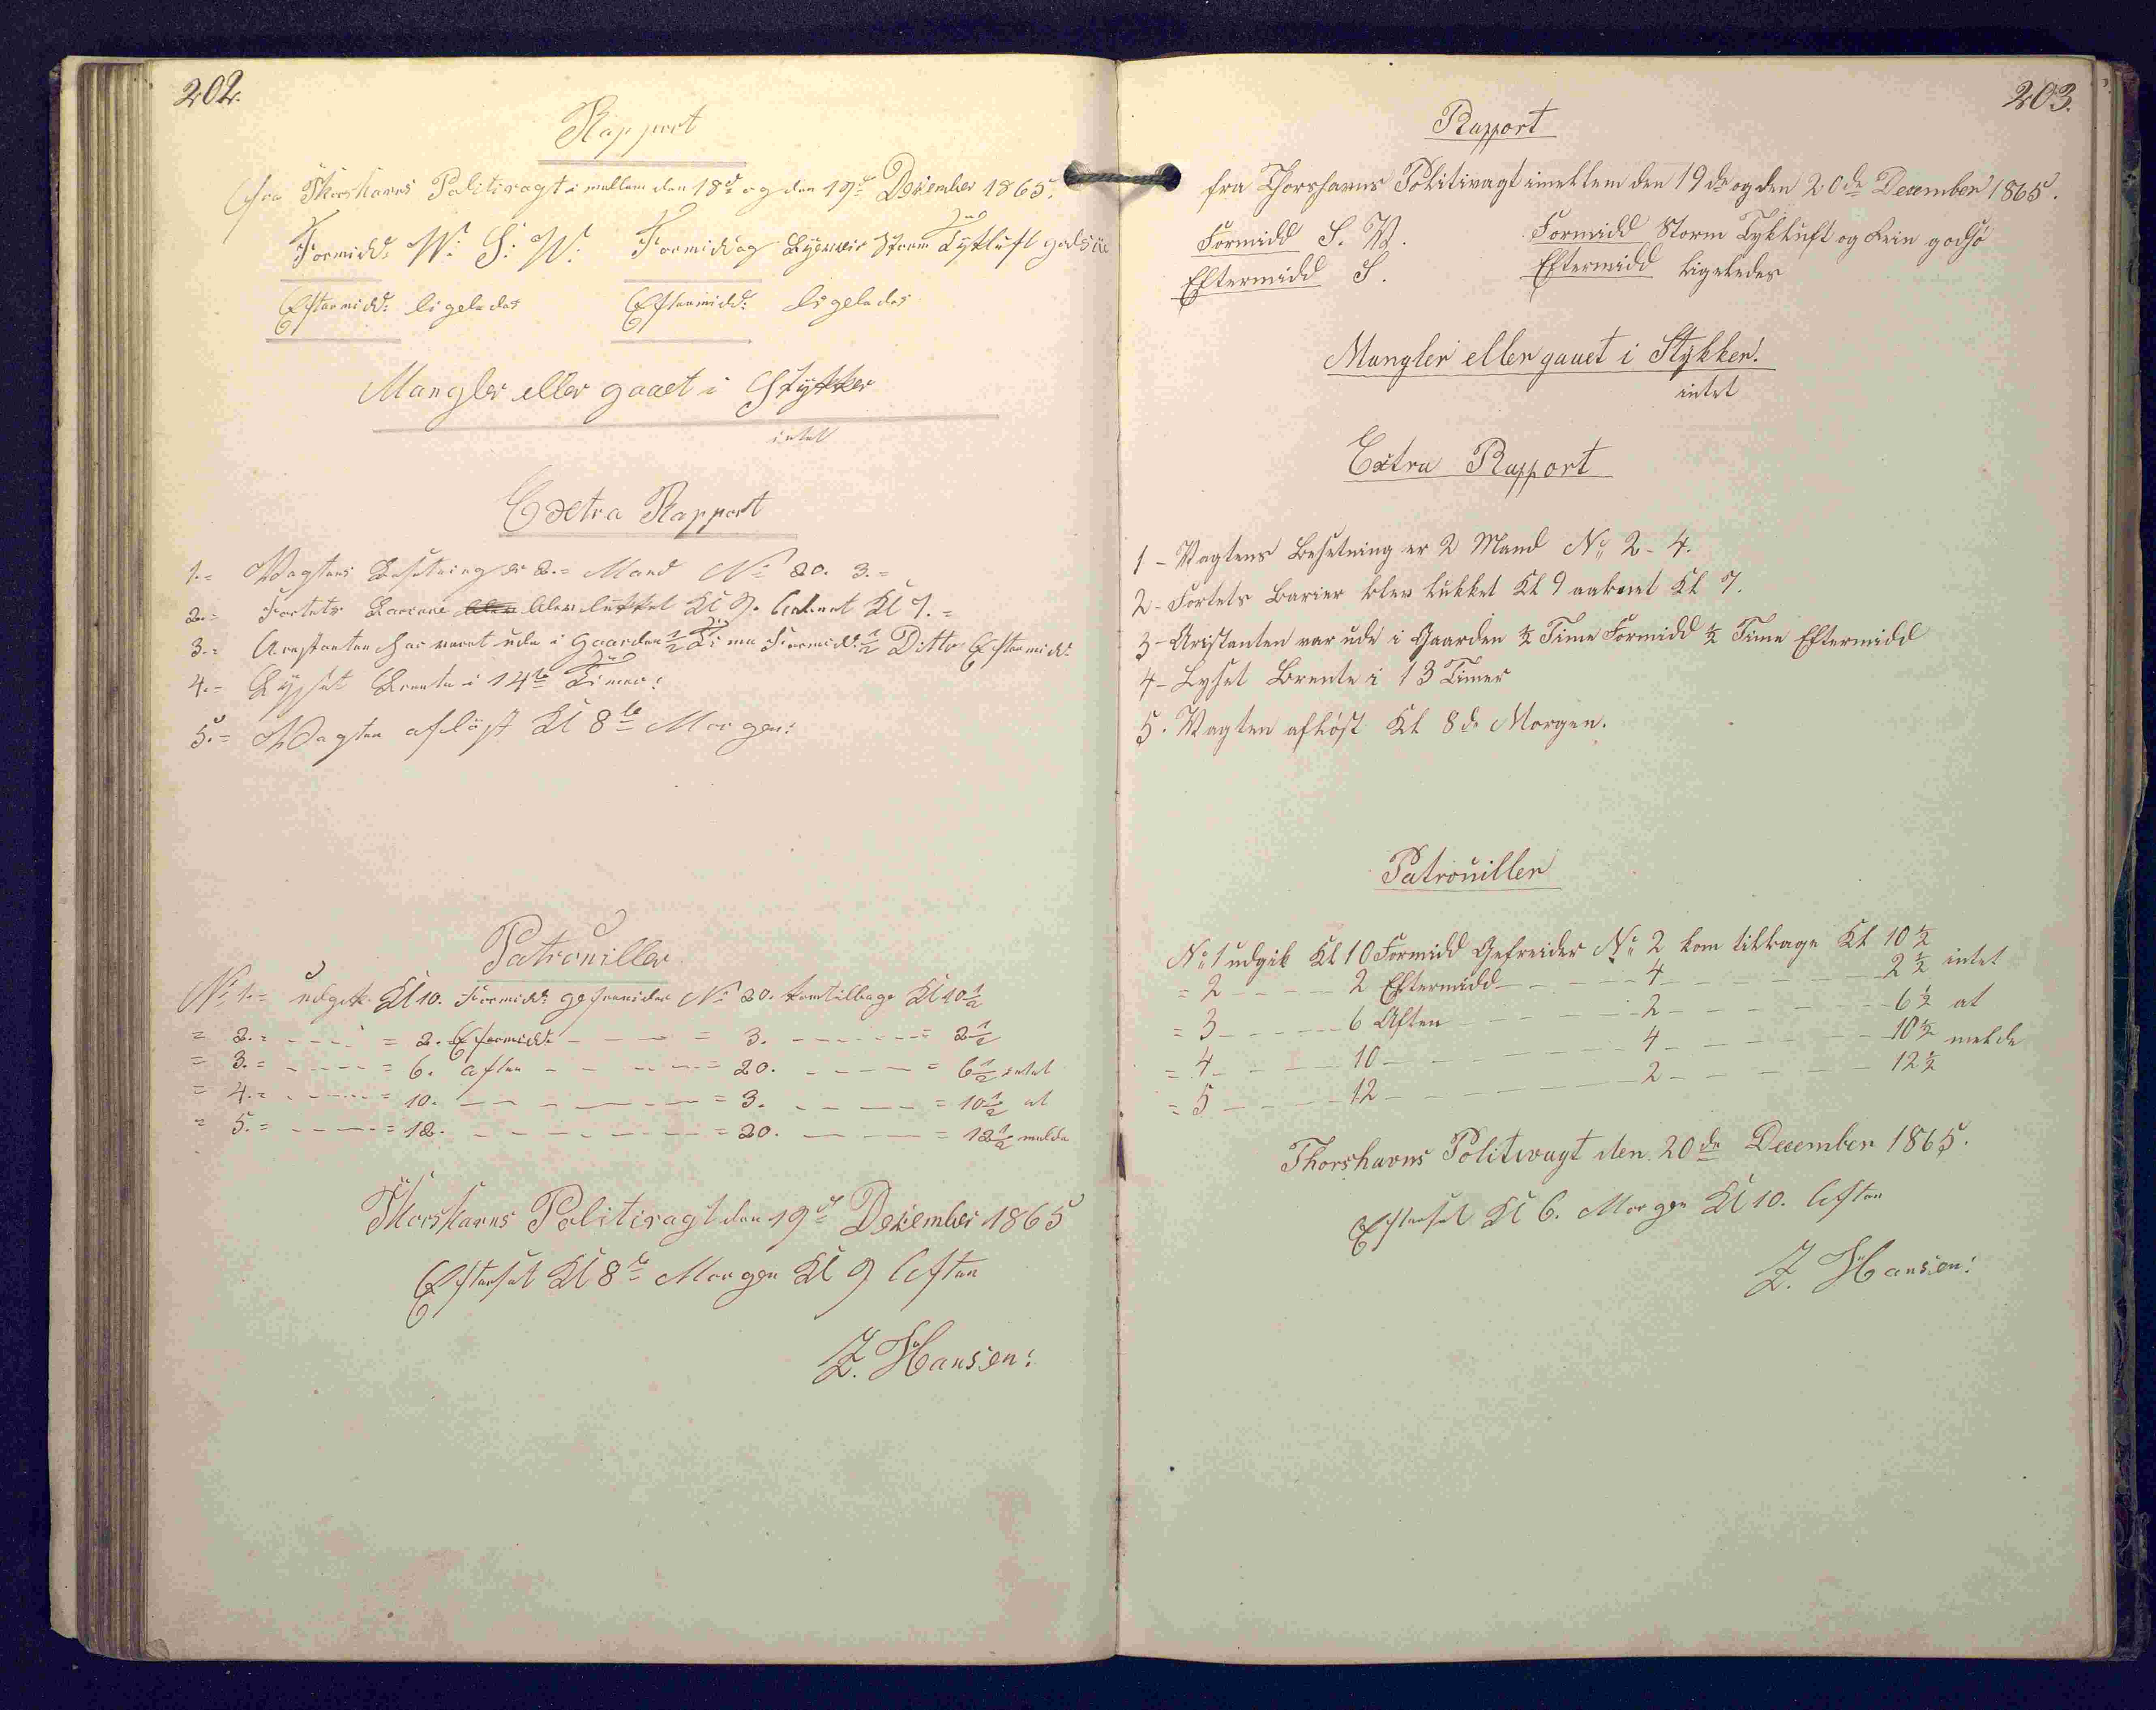 202.
Rapport
fra Thorshavns Politivagt i mellem den 18de og den 19de Desember 1865.
Formidd: W: S: W: Formiddag Bygeveir Storm Tykluft godsöe
Eftermidd: ligeledes Eftermidd: ligeledes
Mangler eller gaaet i Stykker
intet
Extra Rapport
1.= Vagtens Besetning er 2.= Mand No 20. 3.=
2.= Fortets Bariere blev blev lukket Kl 9. Aabnet Kl 7.=
3.= Arestanten har veret ude i Gaarden 1/2 Time Formidd: 1/2 Ditto Eftermidd:
4.= Lysset Brente i 14te Timer:
5.= Vagten aflöst Kl 8te Morgen:
Patrouiller
No 1.= udgik Kl 10. Formidd: gefreider No 20. kom tilbage Kl 10 1/2
= 2.= - - - = 2. Eftermidd: - - - = 3. - - - = 2 1/2
= 3.= - - - = 6. aften - - - = 20. - - - = 6 1/2 intet
= 4.= - - - = 10. - - - = 3. - - - = 10 1/2 at
= 5.= - - - = 12. - - - = 20. - - - = 12 1/2 melde
Thorshavns Politivagt den 19de Desember 1865
Efterset Kl 8te Morgen Kl 9 Aften
Z. Hansen:
203.
Rapport
fra Thorshavns Politivagt imellem den 19de og den 20de December 1865.
Formidd S. W. Formidd Storm Tykluft og Rein godsö
Eftermidd S. Eftermidd ligeledes
Mangler eller gaaet i Stykker.
intet
Extra Rapport
1 - Vagtens Besetning er 2 Mand No 2 - 4.
2 - Fortets Barier blev lukket Kl 9 aabnet Kl 7.
3 - Aristanten var ude i Gaarden 1/2 Time Formidd 1/2 Time Eftermidd
4 - Lyset Brente i 13 Timer
5. Vagten aflöst Kl 8de Morgen.
Patrouiller
No 1 udgik Kl 10 Formidd Gefreider No 2 kom tilbage Kl 10 1/2
= 2 - - - 2 Eftermidd - - - 4 - - - 2 1/2 intet
= 3 - - - 6 Aften - - - 2 - - - 6 1/2 at
= 4 - - - 10 - - - 4 - - - 10 1/2 melde
= 5 - - - 12 - - - 2 - - - 12 1/2
Thorshavns Politivagt den 20de December 1865.
Efterset Kl 6. Morgen Kl 10. Aften
Z. Hansen: